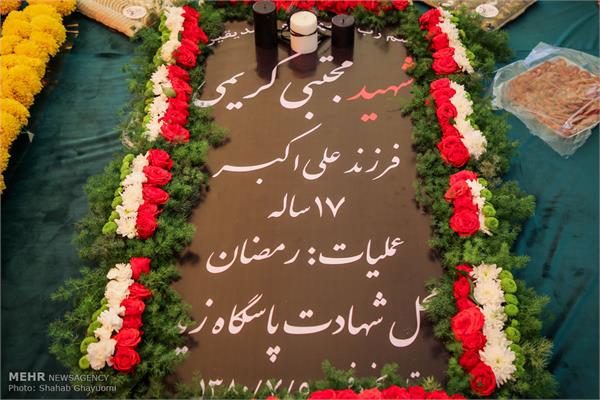 شهید مجتبی کریمی
فرزند علی اکبر
۱۷ ساله
عملیات: رمضان
شهادت پاسگاه
MEHR NEWSAGENCY
Photo: Shahab Ghayoumi